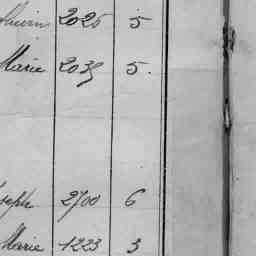 2025 5
Marie 2035 5.
seph 2700 6
Marie 1223 3